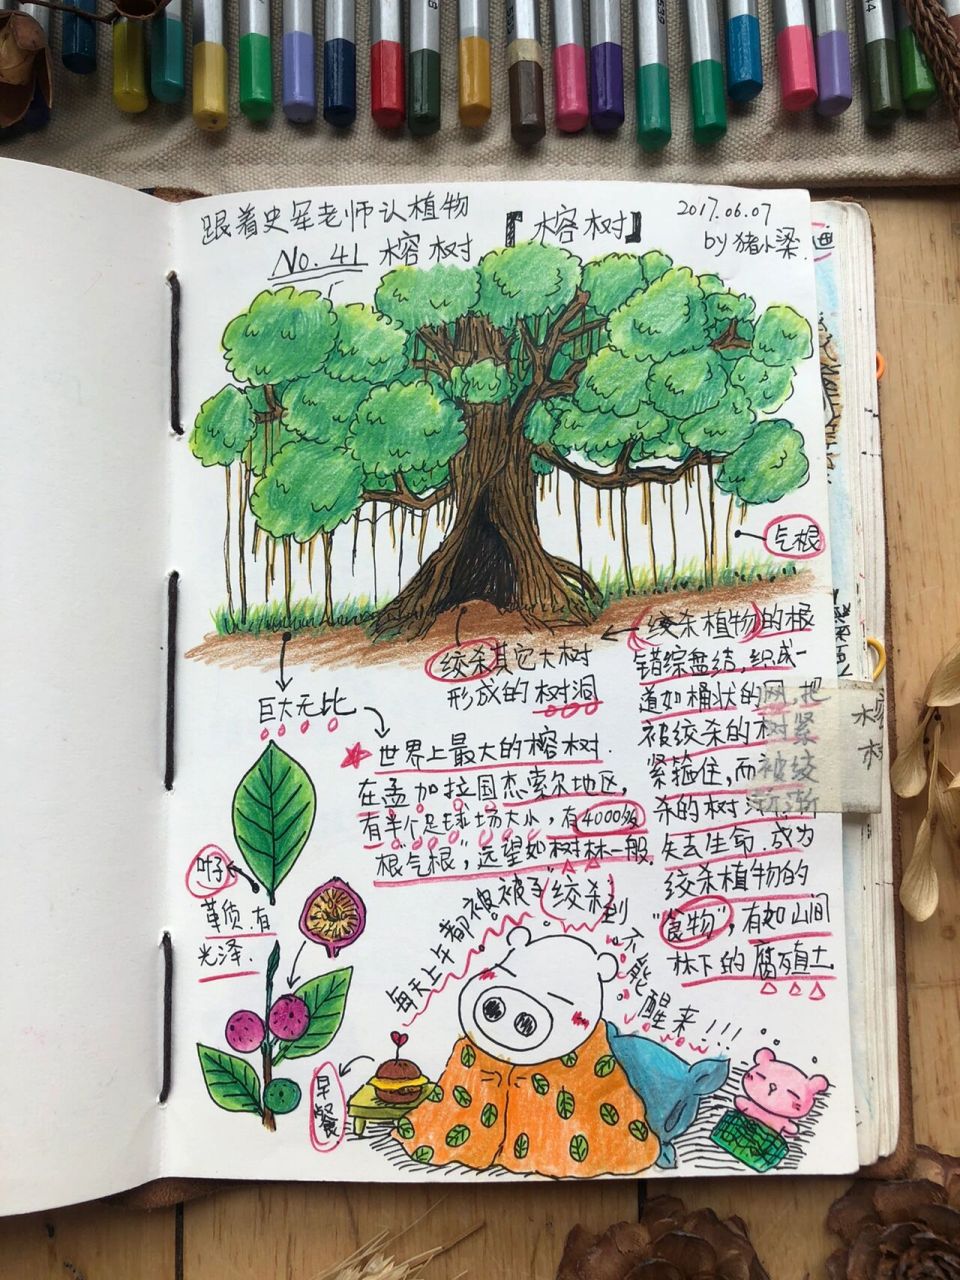 跟着史军老师认植物
No. 41 榕树
【榕树】
2017.06.07
by 猪小梁
气根
绞杀其它大树
形成的树洞
绞杀植物的根
错综盘结，织成一
道如桶状的网，把
被绞杀的树紧
紧箍住，而被绞
杀的树渐渐
失去生命，成为
绞杀植物的
“食物”，有如山间
林下的腐殖土
巨大无比
世界上最大的榕树
在孟加拉国杰索尔地区，
有半个足球场大小，有4000多
根“气根”，远望如树林一般。
叶子
革质，有
光泽.
每天上午都被被子“绞杀”到
不能醒来!!!
早餐
榕
树